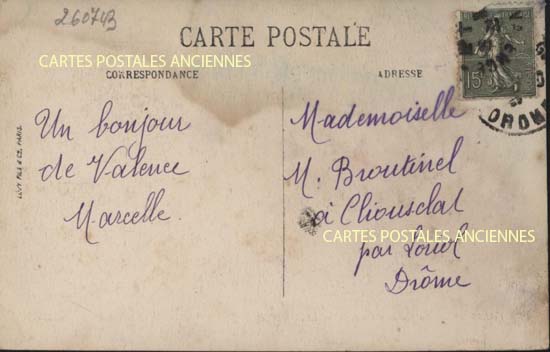 260743
CARTE POSTALE
CARTES POSTALES ANCIENNES
CORRESPONDANCE
ADRESSE
15c
DROME
LÉVY FILS & Cie, PARIS
Un bonjour
de Valence
Marcelle.
Mademoiselle
M. Broutinel
à Cliousclat
CARTES POSTALES ANCIENNES
par Loriol
Drôme